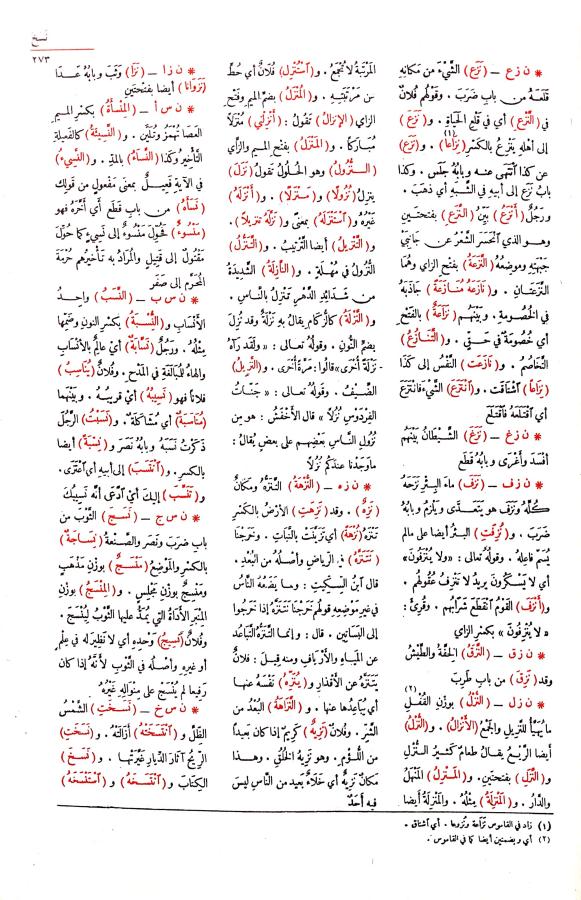 نسخ
٢٧٣
* ن ز ع – (نَزَع) الشَّيْءَ من مَكانِهِ
قَلَعَهُ من بابِ ضَرَبَ . وقَوْلُهُم فُلانٌ
في (النَّزْعِ) أي في قَلْعِ الحَياةِ . و (نَزَع)
إلى أهْلِهِ يَنْزِعُ بالكَسْرِ (نِزاعًا)(١) . و (نَزَع)
عن كذا ٱنْتَهى عنه وبابُهُ جَلَسَ . وكذا
بابُ نَزَع إلى أبيهِ في الشَّبَهِ أي ذهَبَ .
ورَجُلٌ (أنْزَعُ) بَيِّنُ (النَّزَعِ) بفتحتينِ
وهــو الذي ٱنْحَسَر الشَّعْرُ عن جانِبَيْ
جَبْهَتِهِ ومَوضِعُهُ (النَّزَعَةُ) بفتحِ الزاي وهُما
النَّزَعتانِ . و (نازَعَهُ مُنازَعَةً) جاذَبَهُ
في الخُصومةِ . وبَيْنَهُم (نَزاعَةٌ) بالفَتْحِ
أي خُصومةٌ في حَــقٍّ . و (التَّنازُعُ)
التَّخاصُم . و (نازَعَت) النَّفْسُ إلى كذا
(نِزاعًا) ٱشْتاقَت . و (ٱنْتَزَعَ) الشَّيْءَ فانْتَزَعَ
أي ٱقْتَلعَهُ فٱقْتَلَع
* ن ز غ – (نَزَغ) الشَّيْطانُ بَيْنَهُم
أفْسدَ وأغْرى وبابُهُ قَطَع
* ن ز ف – (نَزَف) ماءَ البِئْرِ نَزَحَهُ
كُلَّهُ ونَزَف هو يتعدَّى ويَلْزَمُ وبابُهُ
ضَرَبَ . و (نُزِفَتِ) البِئْرُ أيضا على مالم
يُسَمَّ فاعِلُهُ . وقولُهُ تعالى : «ولا يُنْزَفُونَ»
أي لا يَسْكَرونَ يريدُ لا تُنْزَفُ عُقُولُهُم .
و (أنْزَفَ) القَوْمُ ٱنْقَطَع شَرابُهُم . وقُرِئَ :
«لا يُنْزِفُونَ» بكَسْرِ الزاي
* ن ز ق – (النَّزَقُ) الخِفَّةُ والطَّيْشُ
وقد (نَزِقَ) من بابِ طَرِبَ
* ن ز ل – (النُّزْلُ)(٢) بوَزْنِ القُفْلِ
ما يُهَيَّأُ للنَّزيلِ والجَمْعُ (الأنْزالُ) . و (النُّزْلُ)
أيضا الرَّيْعُ يقالُ طَعامٌ كَثيرُ النُّزْلِ
و (النَّزَلِ) بفتحتينِ . و (المَنْزِلُ) المَنْهَلُ
والدَّارُ . و (المَنْزِلَةُ) مِثْلُهُ . والمَنْزِلَةُ أيضا
المَرْتَبَةُ لا تُجْمَعُ . و (ٱسْتُنْزِلَ) فُلانٌ أي حُطَّ
من مَرْتَبَتِهِ . و (المُنْزَلُ) بضمِّ الميمِ وفتحِ
الزاي (الإنْزالُ) تقولُ : (أنْزِلْني) مُنْزَلًا
مُبارَكًا . و (المَنْزَلُ) بفتحِ الميمِ والزاي
(النُّزولُ) وهو الحُلُولُ تقولُ (نَزَلَ)
يَنزِلُ (نُزُولًا) و (مَنْزَلًا) . و (أنْزَلَهُ)
غيرُهُ و (ٱسْتَنْزَلَهُ) بمعنى و (نَزَّلَهُ تنزيلًا) .
و (التَّنْزيلُ) أيضا التَّرْتيبُ . و (التَّنَزُّلُ)
النُّزُولُ في مُهْلَةٍ . و (النازِلَةُ) الشَّديدَةُ
من شَدائدِ الدَّهْرِ تَنْزِلُ بالناسِ .
و (النَّزْلَةُ) كالزُّكامِ يقالُ به نَزْلَةٌ وقد نُزِلَ
بضمِّ النُّونِ . وقولُهُ تعالى : «ولَقَدْ رَآهُ
نَزْلَةً أخرى» قالوا : مَرَّةً أُخْرَى . و (النَّزيلُ)
الضَّيْفُ . وقَوْلُهُ تعالى : «جنّاتُ
الفِرْدَوْسِ نُزُلًا» قال الأخْفَشُ : هو مِن
نُزُولِ الناسِ بَعْضِهِم على بعضٍ يُقالُ :
ما وَجَدْنا عندكُم نُزُلًا
* ن ز ه – (النُّزْهَةُ) التَّنَزُّهُ ومَكانٌ
(نَزِهٌ) . وقد (نَزِهَتِ) الأرْضُ بالكسْرِ
تَنْزَهُ (نُزْهَةً) أي تَزَيَّنَتْ بالنَّباتِ . وخَرَجْنا
(نَتَنَزَّهُ) في الرِّياضِ وأصْلُهُ من البُعْدِ .
قال ٱبنُ السِّكِّيت : ومما يَضَعُهُ النَّاسُ
في غيرِ مَوْضِعِهِ قولُهُم خَرَجْنا نَتَنَزَّهُ إذا خَرجُوا
إلى البَساتينِ . قال : وإنما التَّنَزُّهُ التَّباعُد
عن المِياهِ والأرْيافِ ومنه قِيلَ : فلانٌ
يَتَنَزَّهُ عن الأقْذارِ و (يُنَزِّهُ) نَفْسَهُ عنها
أي يُباعِدُها عنها . و (النَّزاهَةُ) البُعْدُ من
الشَّرِّ . وفُلانٌ (نَزِيهٌ) كَرِيمٌ إذا كان بعيدًا
من اللُّؤْمِ . وهو نَزِيهُ الخُلُقِ . وهــذا
مَكانٌ نَزِيهٌ أي خَلاءٌ بَعيد من النَّاسِ ليس
فيهِ أحَدٌ
* ن ز ا – (نَزَا) وَثَبَ وبابُهُ عَــدَا
(نَزَوانًا) أيضا بفتحتينِ
* ن س أ – (المِنْسَأةُ) بكَسْرِ الميمِ
العَصَا تُهْمَزُ وتُلَيَّن . و (النَّسِيئَةُ) كالفَعِيلةِ
التَّأخِيرُ وكذا (النَّسَاءُ) بالمدِّ . و (النَّسِيءُ)
في الآيةِ فَعِيلٌ بمعنى مَفعولٍ من قولِكَ
(نَسَأهُ) من بابِ قَطَعَ أي أخَّرَهُ فهو
(مَنْسوءٌ) فحُوِّلَ مَنْسُوءٌ إلى نَسِيءٍ كما حُوِّلَ
مَقْتُولٌ إلى قَتِيلٍ والمُرادُ به تأخِيرُهُم حُرْمَةَ
المُحرَّمِ إلى صَفَرٍ
* ن س ب – (النَّسَبُ) واحِــدُ
الأنْسابِ و (النِّسْبَةُ) بكسْرِ النونِ وضَمِّها
مِثْلُهُ . ورَجُلٌ (نَسَّابَةٌ) أي عالِمٌ بالأنْسابِ
والهاءُ للمُبالَغةِ في المَدْحِ . وفُلانٌ (يُناسِبُ)
فُلانا فهو (نَسِيبُهُ) أي قَريبُهُ . وبَيْنَهُما
(مُناسَبَةٌ) أي مُشاكَلَةٌ . و (نَسَبْتُ) الرَّجُلَ
ذَكَرْتُ نَسَبَهُ وبابُهُ نَصَرَ و (نِسْبَةً) أيضا
بالكسرِ . و (ٱنْتَسَبَ) إلى أبيهِ أي ٱعْتَزى .
و (تَنَسَّبَ) إليكَ أي ٱدَّعى أنَّه نَسِيبُكَ
* ن س ج – (نَسَجَ) الثَّوْبَ من
بابِ ضَرَبَ ونَصَرَ والصَّنْعَةُ (نِساجَةٌ)
بالكَسْرِ والمَوْضِعُ (مَنْسَجٌ) بوَزْنِ مَذْهَبٍ
ومَنْسِجٌ بوَزْنِ مَجْلِسٍ . و (المِنْسَجُ) بوَزْنِ
المِنْبَرِ الأداةُ التي يُمَدُّ عليها الثَّوْبُ ليُنْسَجَ .
وفُلانٌ (نَسِيجُ) وَحْدِهِ أي لا نَظيرَ لهُ في عِلْمٍ
أو غيرِهِ وأصْلُهُ في الثَّوْبِ لأنَّهُ إذا كان
رَفِيعا لم يُنْسَجْ على مِنْوالِهِ غَيْرُهُ
* ن س خ – (نَسَخَتِ) الشَّمْسُ
الظِّلَّ و (ٱنْتَسَخَتْهُ) أزالَتْهُ . و (نَسَخَتِ)
الرِّيحُ آثارَ الدّيارِ غَيَّرَتْها . و (نَسَخَ)
الكِتابَ و (ٱنْتَسَخَهُ) و (ٱسْتَنْسَخَهُ)
(١) زاد في القاموس نزاعة ونزوعا . أي ٱشتاق .
(٢) أي وبضمتين أيضا كما في القاموس .